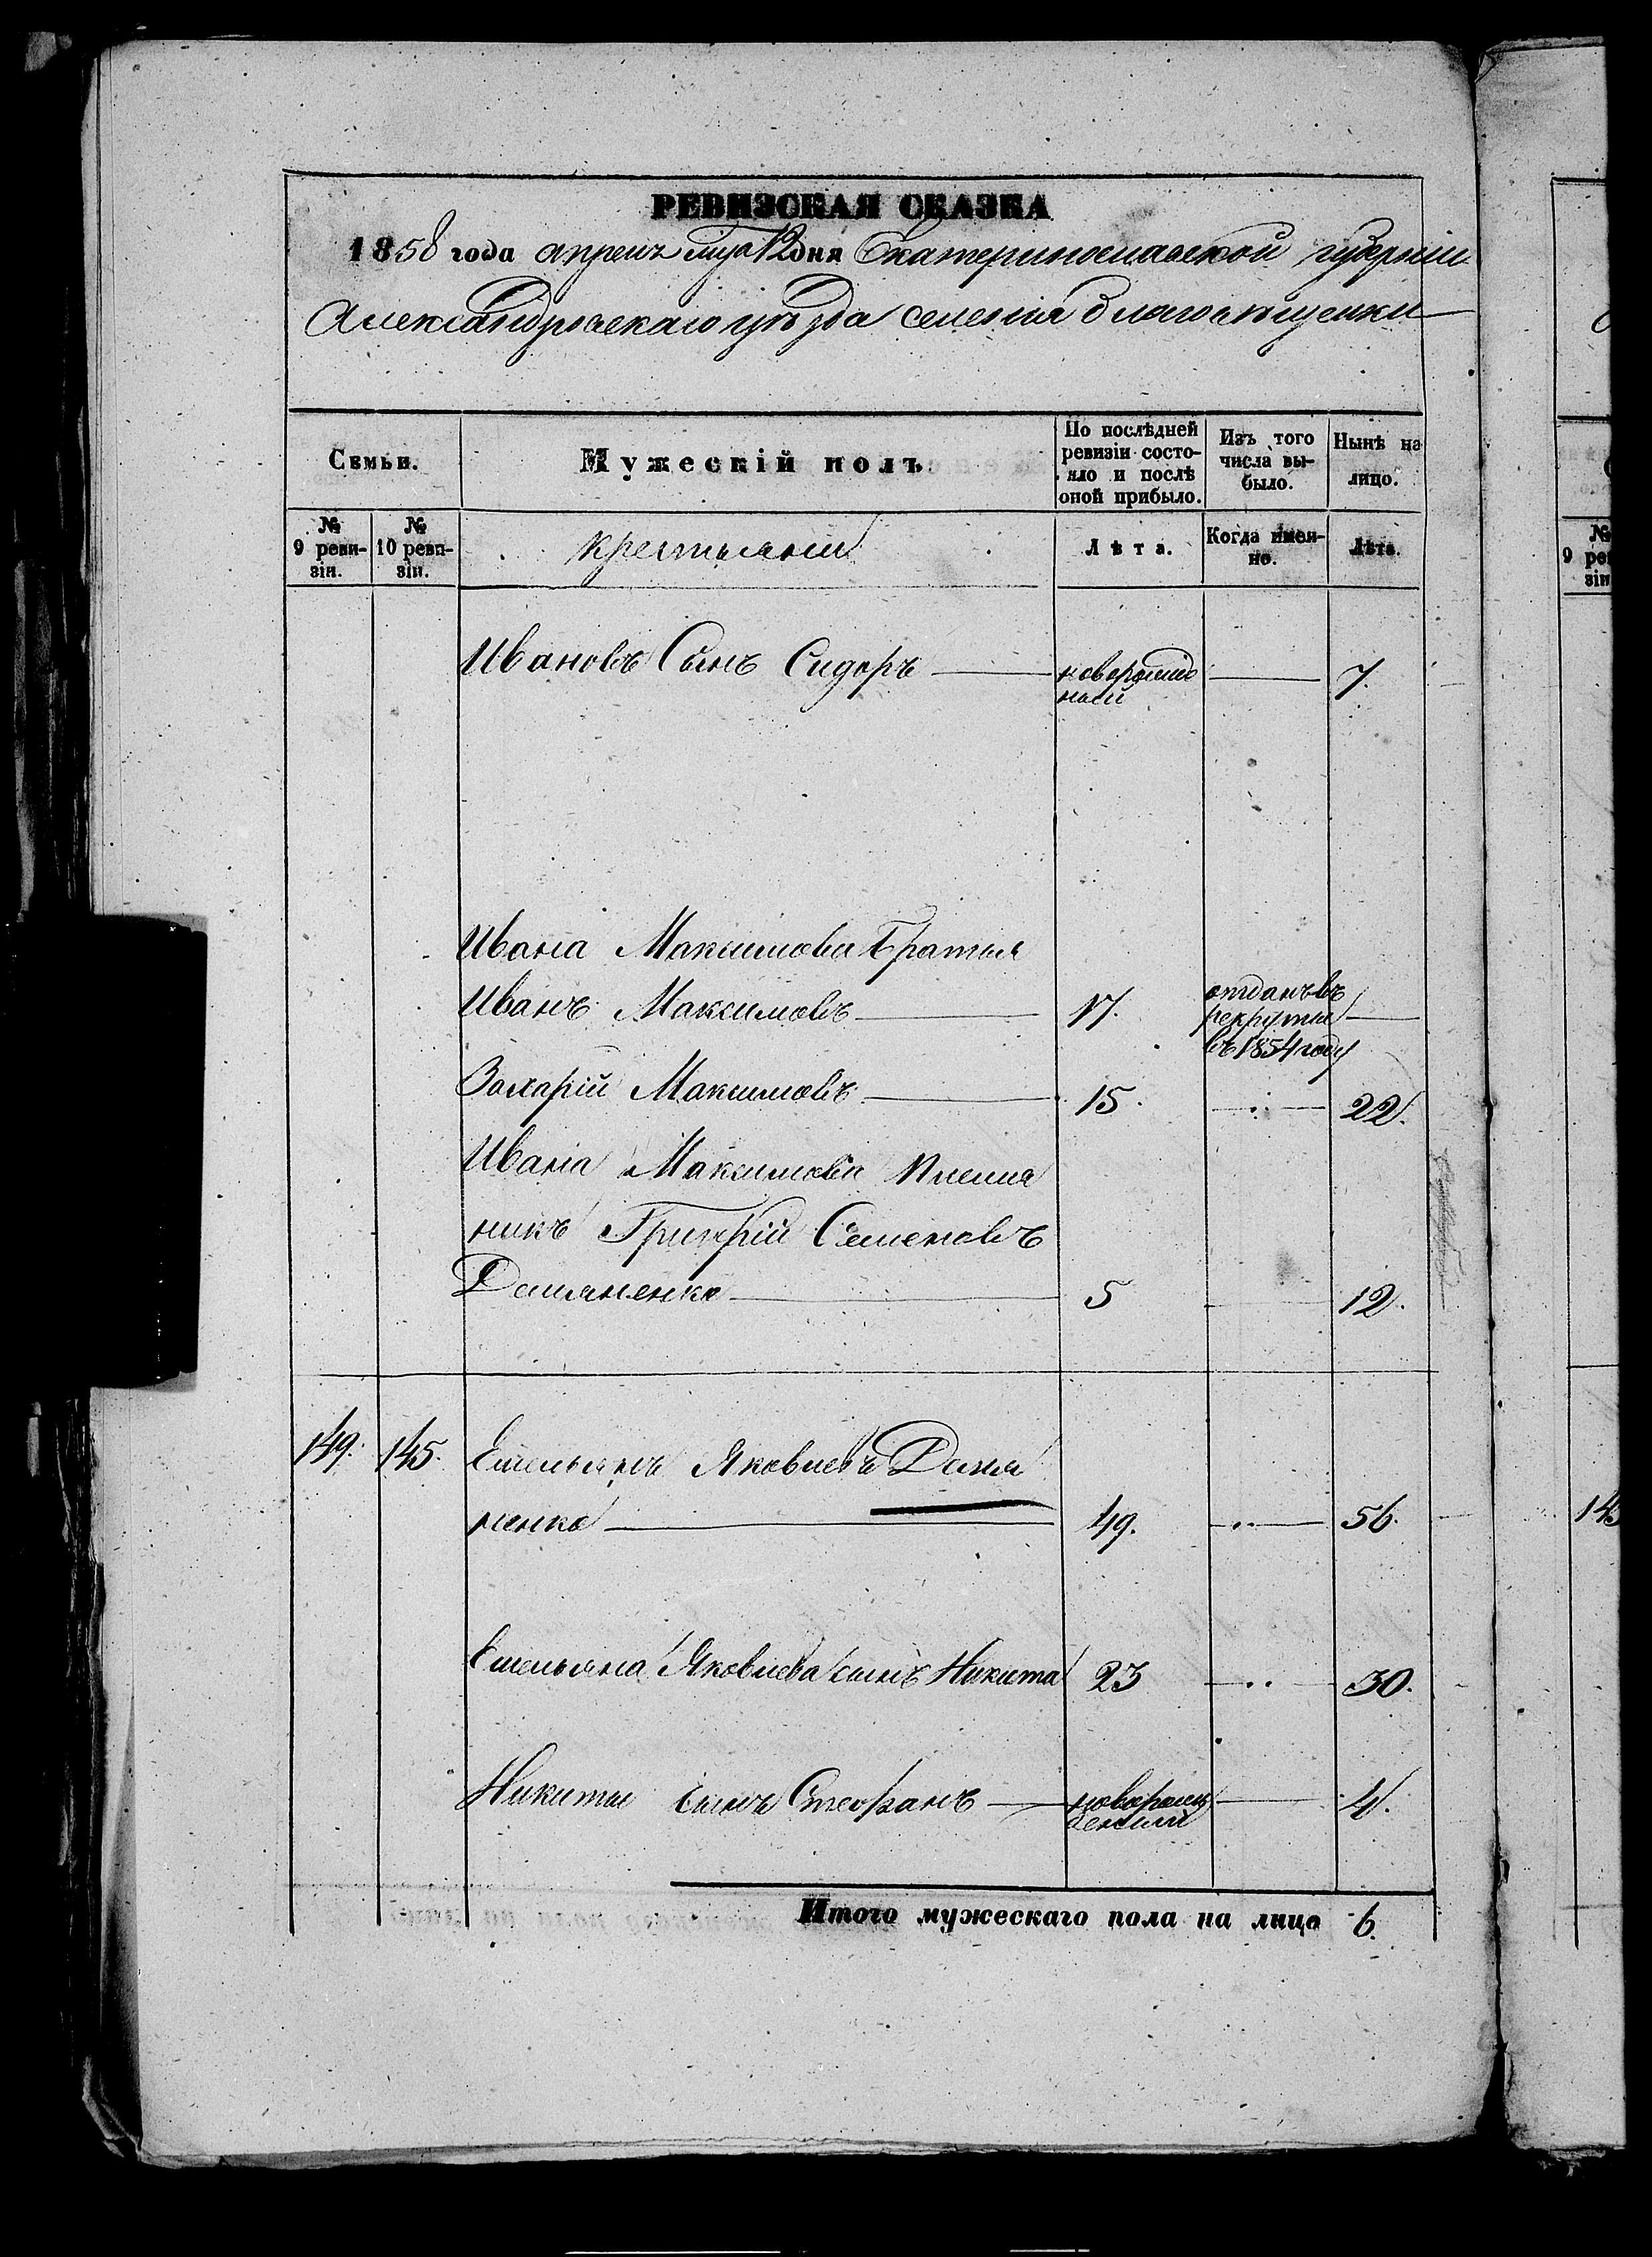 РЕВИЗСКАЯ СКАЗКА
1858 года апреля мца 12 дня Екатеринославской губерніи
Александровскаго уѣзда селенія Благовѣщенки
Семьи.
Мужескій полъ
По послѣдней
ревизіи состо-
яло и послѣ
оной прибыло.
Изъ того
числа вы-
было.
Нынѣ на
лицо.
№
9 реви-
зіи.
№
10 реви-
зіи.
крестьяни
Лѣта.
Когда имен-
но.
Лѣта.
Ивановъ Сынъ Сидоръ новорожде 7.
ный
Ивана Максимова Братья
Иванъ Максимовъ 17. отданъ въ
рекруты
въ 1854 году
Захарій Максимовъ 15. 22.
Ивана Максимова племя
никъ Григорій Семеновъ
Демяненко 5 12.
149. 145. Емельянъ Яковлевъ Демя
ненко 49. 56.
Емельяна Яковлева сынъ Никита 23 30.
Никиты сынъ Стефанъ новорож 4.
денный
Итого мужескаго пола на лицо 6.
№
9 рев
зіи